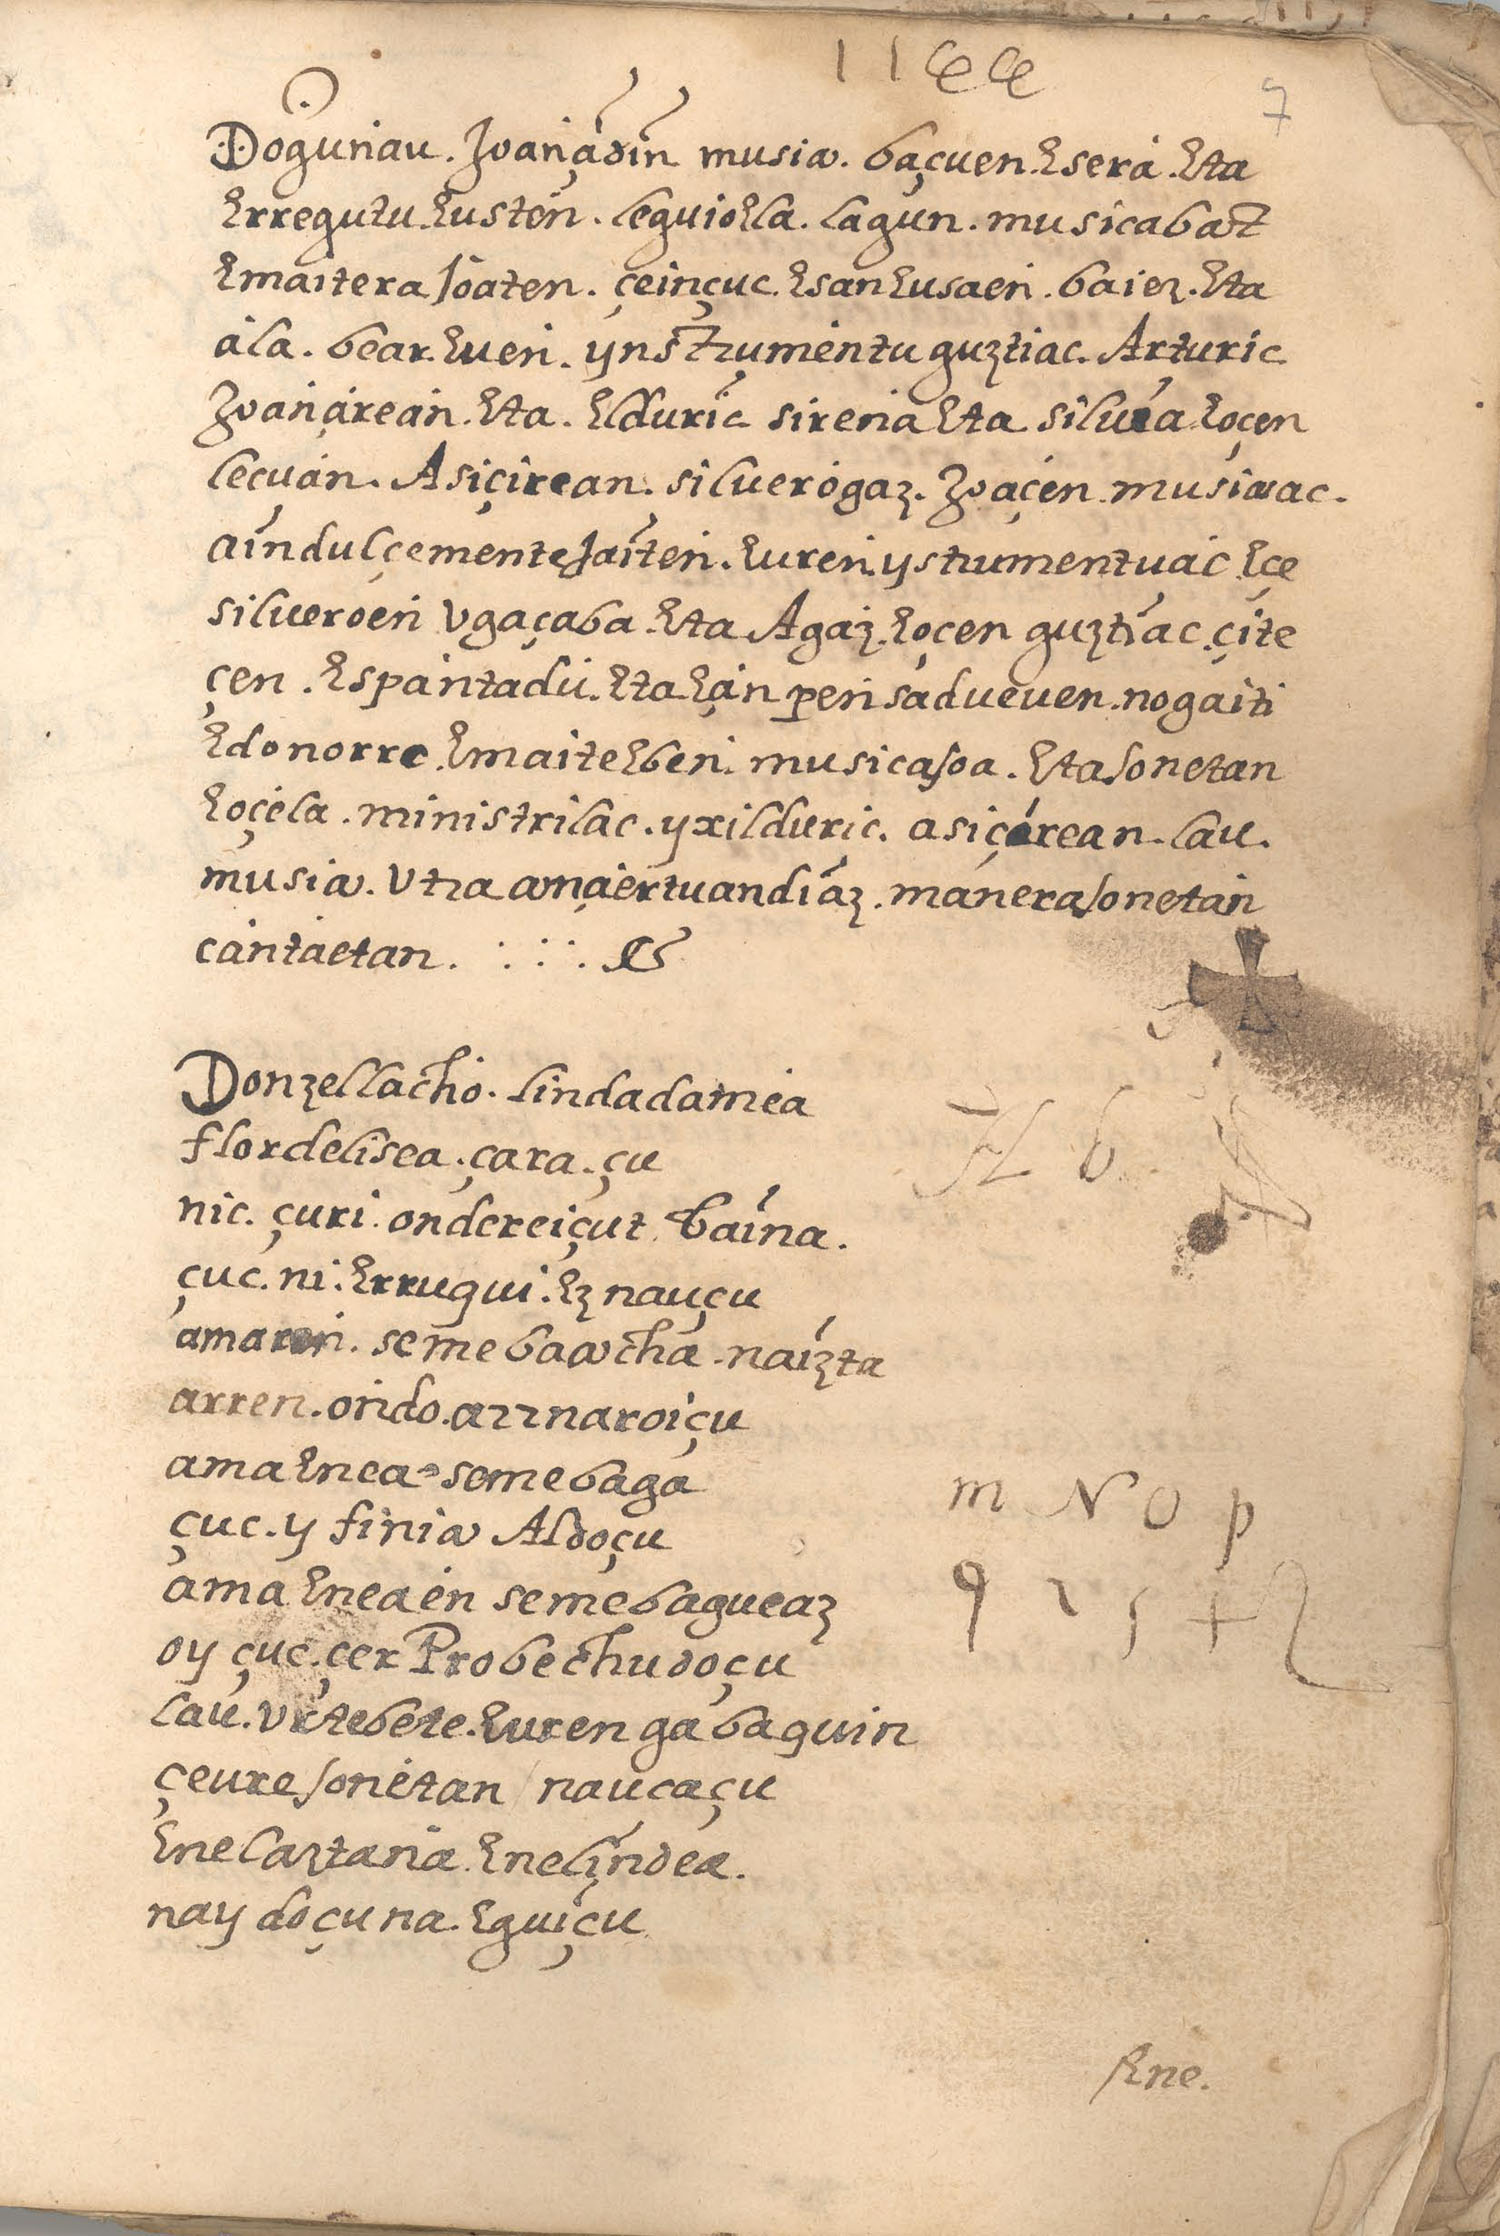 7
Dogunau. Joanadin musica. baçuen. Esera. Eta
Erregutu. Eusten. leguioela. lagun. musicabat
Emaitera joaten. çeinçuc. Esan Eusaen. baiez. Eta
ala. bear. Euen. ynstrumentu guztiac. Arturic
Joançirean. Eta. Elduric sirena Eta siluia Eoçen
lecuan. Asiçirean. siluerogaz. Joaçen musicaac.
ain dulçemente Jaiten. Euren ystrumentuac Eçe
silueroen vgaçaba. Eta Agaz. Eoçen guztiac. çite
çen. Espantadu. Eta Eçin pensadueuen. nogaiti
Edonorrc Emaite Eben. musica joa. Eta sonetan
Eoçela. ministrilac. yxilduric. asiçirean. lau.
musica. vtra amaertuandiaz. manera sonetan
cantaetan.
Donzellacho. lindadamea
flordelisea. çara. çu
nic. çuri. ondereiçut baina.
çuc. ni. Errugui. Ez nauçu
amaren. seme bacocha. naizta
arren. ondo. arrnaroiçu
ama Enea seme baga
çuc. y finica Aldoçu
ama Eneaen seme bagueaz
oy çuc. çer Probechudoçu
lau. vrtebete. Euren gabaguin
çeure sonetan naucaçu
Ene laztana. Ene lindea.
nay doçuna. Eguiçu
m N O p
Ene.